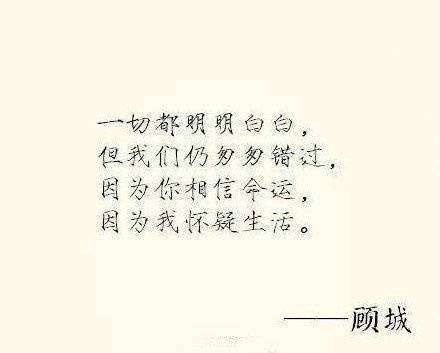 一切都明明白白，
但我们仍匆匆错过，
因为你相信命运，
因为我怀疑生活。
——顾城